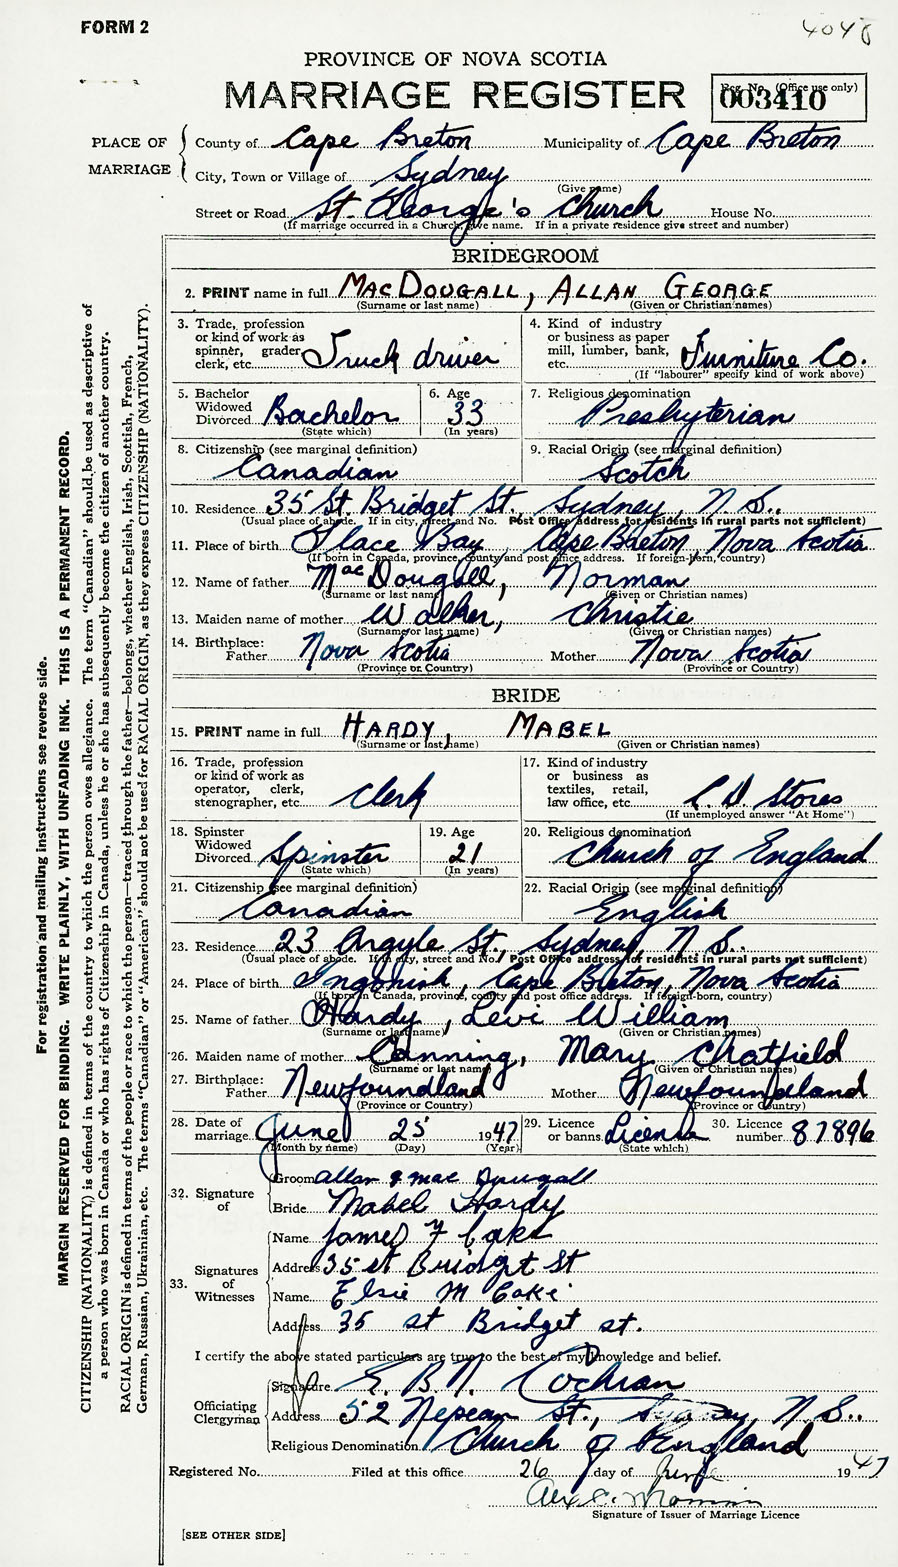 FORM 2
4048
PROVINCE OF NOVA SCOTIA
MARRIAGE REGISTER
Reg. No. (Office use only)
003410
PLACE OF MARRIAGE
County of Cape Breton Municipality of Cape Breton
City, Town or Village of Sydney
(Give name)
Street or Road St. George's Church House No.
(If marriage occurred in a Church, give name. If in a private residence give street and number)
BRIDEGROOM
2. PRINT name in full MACDOUGALL, ALLAN GEORGE
(Surname or last name) (Given or Christian names)
3. Trade, profession or kind of work as spinner, grader, clerk, etc. Truck driver
4. Kind of industry or business as paper mill, lumber, bank, etc. Furniture Co.
(If "labourer" specify kind of work above)
5. Bachelor Widowed Divorced Bachelor
(State which)
6. Age 33
(In years)
7. Religious denomination Presbyterian
8. Citizenship (see marginal definition) Canadian
9. Racial Origin (see marginal definition) Scotch
10. Residence 35 St. Bridget St., Sydney, N.S.
(Usual place of abode. If in city, street and No. Post Office address for residents in rural parts not sufficient)
11. Place of birth Glace Bay, Cape Breton, Nova Scotia
(If born in Canada, province, county and post office address. If foreign-born, country)
12. Name of father MacDougall, Norman
(Surname or last name) (Given or Christian names)
13. Maiden name of mother Walker, Christie
(Surname or last name) (Given or Christian names)
14. Birthplace: Father Nova Scotia Mother Nova Scotia
(Province or Country) (Province or Country)
BRIDE
15. PRINT name in full HARDY, MABEL
(Surname or last name) (Given or Christian names)
16. Trade, profession or kind of work as operator, clerk, stenographer, etc. Clerk
17. Kind of industry or business as textiles, retail, law office, etc. Stores
(If unemployed answer "At Home")
18. Spinster Widowed Divorced Spinster
(State which)
19. Age 21
(In years)
20. Religious denomination Church of England
21. Citizenship (see marginal definition) Canadian
22. Racial Origin (see marginal definition) English
23. Residence 23 Argyle St., Sydney, N.S.
(Usual place of abode. If in city, street and No. Post Office address for residents in rural parts not sufficient)
24. Place of birth Ingonish, Cape Breton, Nova Scotia
(If born in Canada, province, county and post office address. If foreign-born, country)
25. Name of father Hardy, Levi William
(Surname or last name) (Given or Christian names)
26. Maiden name of mother Canning, Mary Chatfield
(Surname or last name) (Given or Christian names)
27. Birthplace: Father Newfoundland Mother Newfoundland
(Province or Country) (Province or Country)
28. Date of marriage June 25 1947
(Month by name) (Day) (Year)
29. Licence or banns License
(State which)
30. Licence number 87896
32. Signature of
Groom Allan G Mac Dougall
Bride Mabel Hardy
33. Signatures of Witnesses
Name James Y Cake
Address 35 St Bridget St
Name Elsie M Cake
Address 35 St Bridget St.
I certify the above stated particulars are true to the best of my knowledge and belief.
Officiating Clergyman
Signature E. B. N. Cochran
Address 52 Nepean St., Sydney, N.S.
Religious Denomination Church of England
Registered No. Filed at this office 26 day of June 1947
Signature of Issuer of Marriage Licence
[SEE OTHER SIDE]
For registration and mailing instructions see reverse side.
MARGIN RESERVED FOR BINDING. WRITE PLAINLY, WITH UNFADING INK. THIS IS A PERMANENT RECORD.
CITIZENSHIP (NATIONALITY) is defined in terms of the country to which the person owes allegiance. The term "Canadian" should be used as descriptive of
a person who was born in Canada or who has rights of Citizenship in Canada, unless he or she has subsequently become the citizen of another country.
RACIAL ORIGIN is defined in terms of the people or race to which the person—traced through the father—belongs, whether English, Irish, Scottish, French,
German, Russian, Ukrainian, etc. The terms "Canadian" or "American" should not be used for RACIAL ORIGIN, as they express CITIZENSHIP (NATIONALITY).